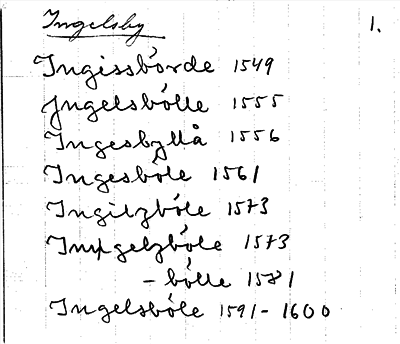 Ingelsby 1.
Ingissbörde 1549
Ingelsbölle 1555
Ingesbyllå 1556
Ingesböle 1561
Ingilzböle 1573
Ingelzböle 1573
- bölle 1581
Ingelsböle 1591-1600